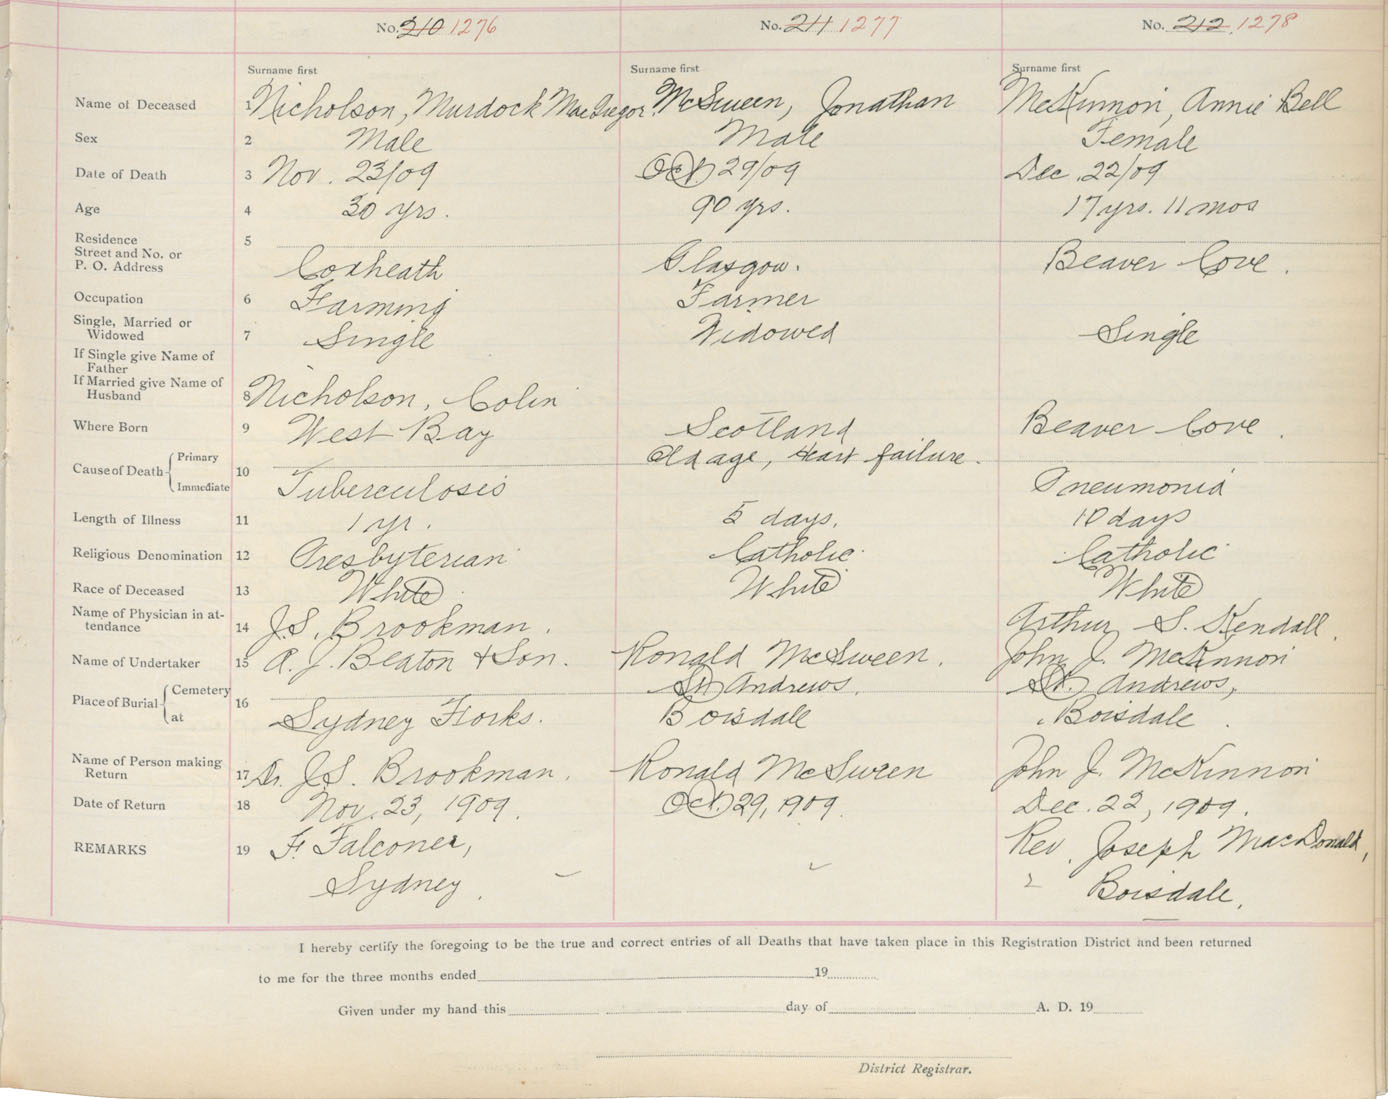 No. 210 1276 No. 211 1277 No. 212 1278
Surname first Surname first Surname first
Name of Deceased 1 Nicholson, Murdock MacGregor. McSween, Jonathan McKinnon, Annie Bell
Sex 2 Male Male Female
Date of Death 3 Nov. 23/09 Oct. 29/09 Dec. 22/09
Age 4 30 yrs. 90 yrs. 17 yrs. 11 mos
Residence 5
Street and No. or
P. O. Address Coxheath Glasgow. Beaver Cove.
Occupation 6 Farming Farmer
Single, Married or
Widowed 7 Single Widowed Single
If Single give Name of
Father
If Married give Name of
Husband 8 Nicholson, Colin
Where Born 9 West Bay Scotland Beaver Cove.
Cause of Death Primary Old age, Heart failure.
Immediate 10 Tuberculosis Pneumonia
Length of Illness 11 1 yr. 5 days. 10 days
Religious Denomination 12 Presbyterian Catholic Catholic
Race of Deceased 13 White White White
Name of Physician in at-
tendance 14 J.S. Brookman. Arthur S. Kendall.
Name of Undertaker 15 A. J. Beaton & Son. Ronald McSween. John J. McKinnon
Place of Burial Cemetery St. Andrews. St. Andrews,
at 16 Sydney Forks. Boisdale Boisdale.
Name of Person making
Return 17 Dr. J.S. Brookman. Ronald McSween John J. McKinnon
Date of Return 18 Nov. 23, 1909. Oct. 29, 1909. Dec. 22, 1909.
REMARKS 19 F. Falconer, Rev. Joseph MacDonald,
Sydney. Boisdale.
I hereby certify the foregoing to be the true and correct entries of all Deaths that have taken place in this Registration District and been returned
to me for the three months ended 19
Given under my hand this day of A. D. 19
District Registrar.